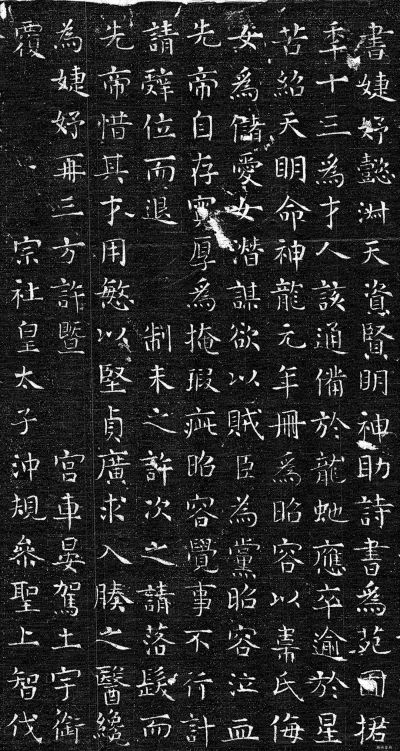 書婕妤懿淑天資賢明神助詩書爲苑囿捃
秊十三爲才人該通備於龍虵應卒逾於星
苦紹天明命神龍元年冊爲昭容以韋氏侮
女爲儲愛女潛謀欲以賊臣為黨昭容泣血
先帝自存寬厚爲掩瑕疵昭容覺事不行計
請辭位而退 制未之許次之請落髮而
先帝惜其才用慜以堅貞廣求入腠之醫纔
為婕妤再三方許暨 宮車晏駕土宇銜
覆 宗社皇太子沖規叅聖上智伐